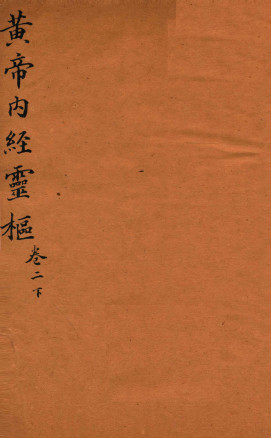 黄帝内經靈樞
卷二下